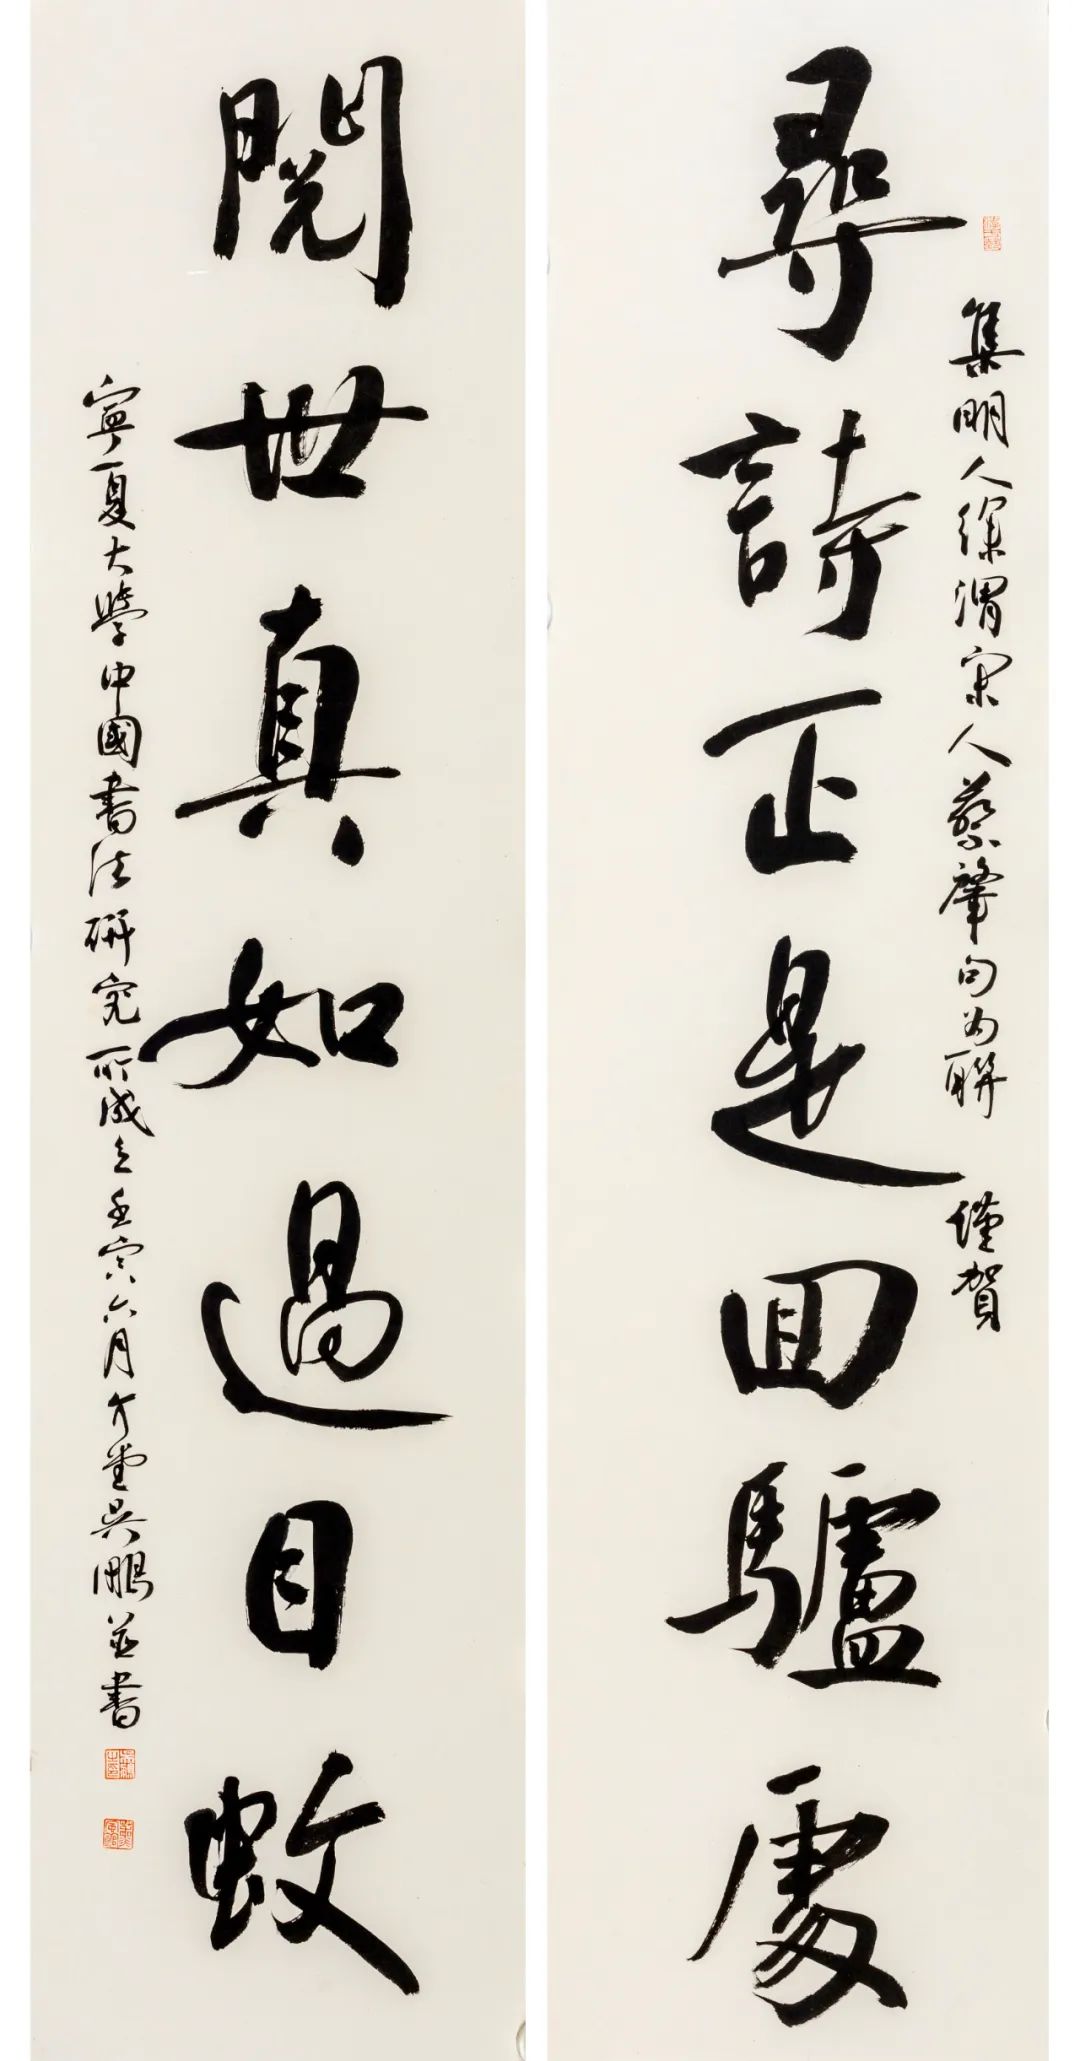 尋詩正是回驢處
集明人徐渭宋人蔡肇句为聯 謹賀
閱世真如過目蚊
寧夏大學中國書法研究所成立壬寅六月介堂吳鵬並書